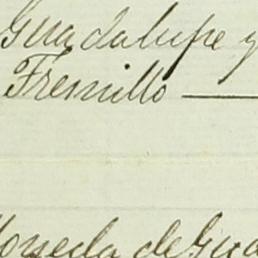 Guadalupe y
Fresnillo —
Moneda de Gua